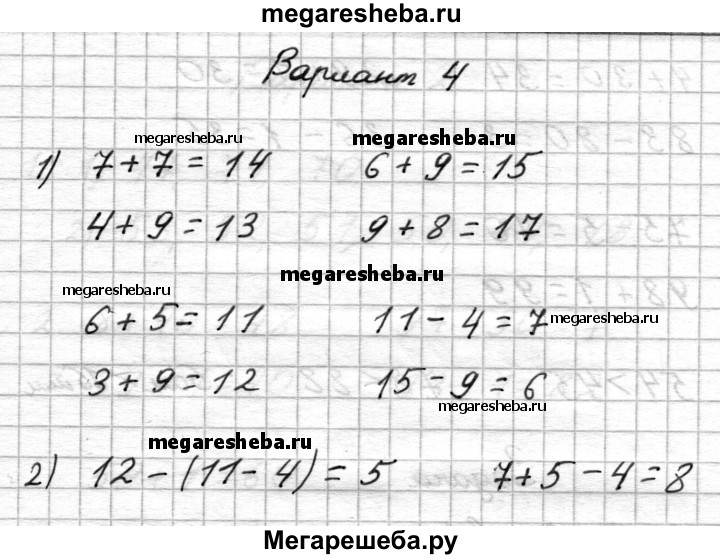 megaresheba.ru
Вариант 4
megaresheba.ru megaresheba.ru
1) 7 + 7 = 14 6 + 9 = 15
4 + 9 = 13 9 + 8 = 17
megaresheba.ru
megaresheba.ru
6 + 5 = 11 11 - 4 = 7 megaresheba.ru
3 + 9 = 12 15 - 9 = 6
megaresheba.ru
megaresheba.ru
2) 12 - (11 - 4) = 5 7 + 5 - 4 = 8
Мегарешеба.ру